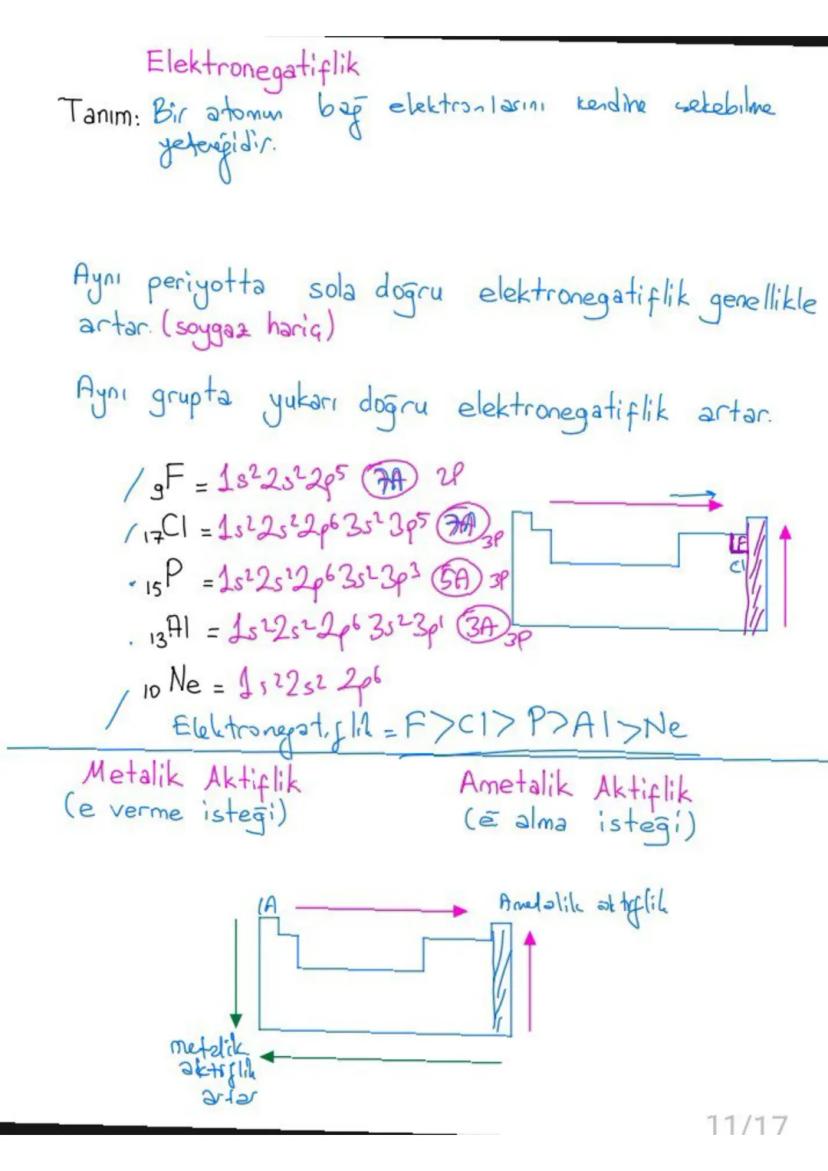 Elektronegatiflik
Tanım: Bir atomun bağ elektronlarını kendine çekebilme
yeteneğidir.
Aynı periyotta sola doğru elektronegatiflik genellikle
artar. (soygaz hariç)
Aynı grupta yukarı doğru elektronegatiflik artar.
₉F = 1s² 2s² 2p⁵ 7A 2P
₁₇Cl = 1s² 2s² 2p⁶ 3s² 3p⁵ 7A 3P
₁₅P = 1s² 2s² 2p⁶ 3s² 3p³ 5A 3P
₁₃Al = 1s² 2s² 2p⁶ 3s² 3p¹ 3A 3P
₁₀Ne = 1s² 2s² 2p⁶
F
Cl
Elektronegatiflik = F > Cl > P > Al > Ne
Metalik Aktiflik
(e verme isteği)
Ametalik Aktiflik
(ē alma isteği)
1A
Ametalik aktiflik
metalik
aktiflik
artar
11/17